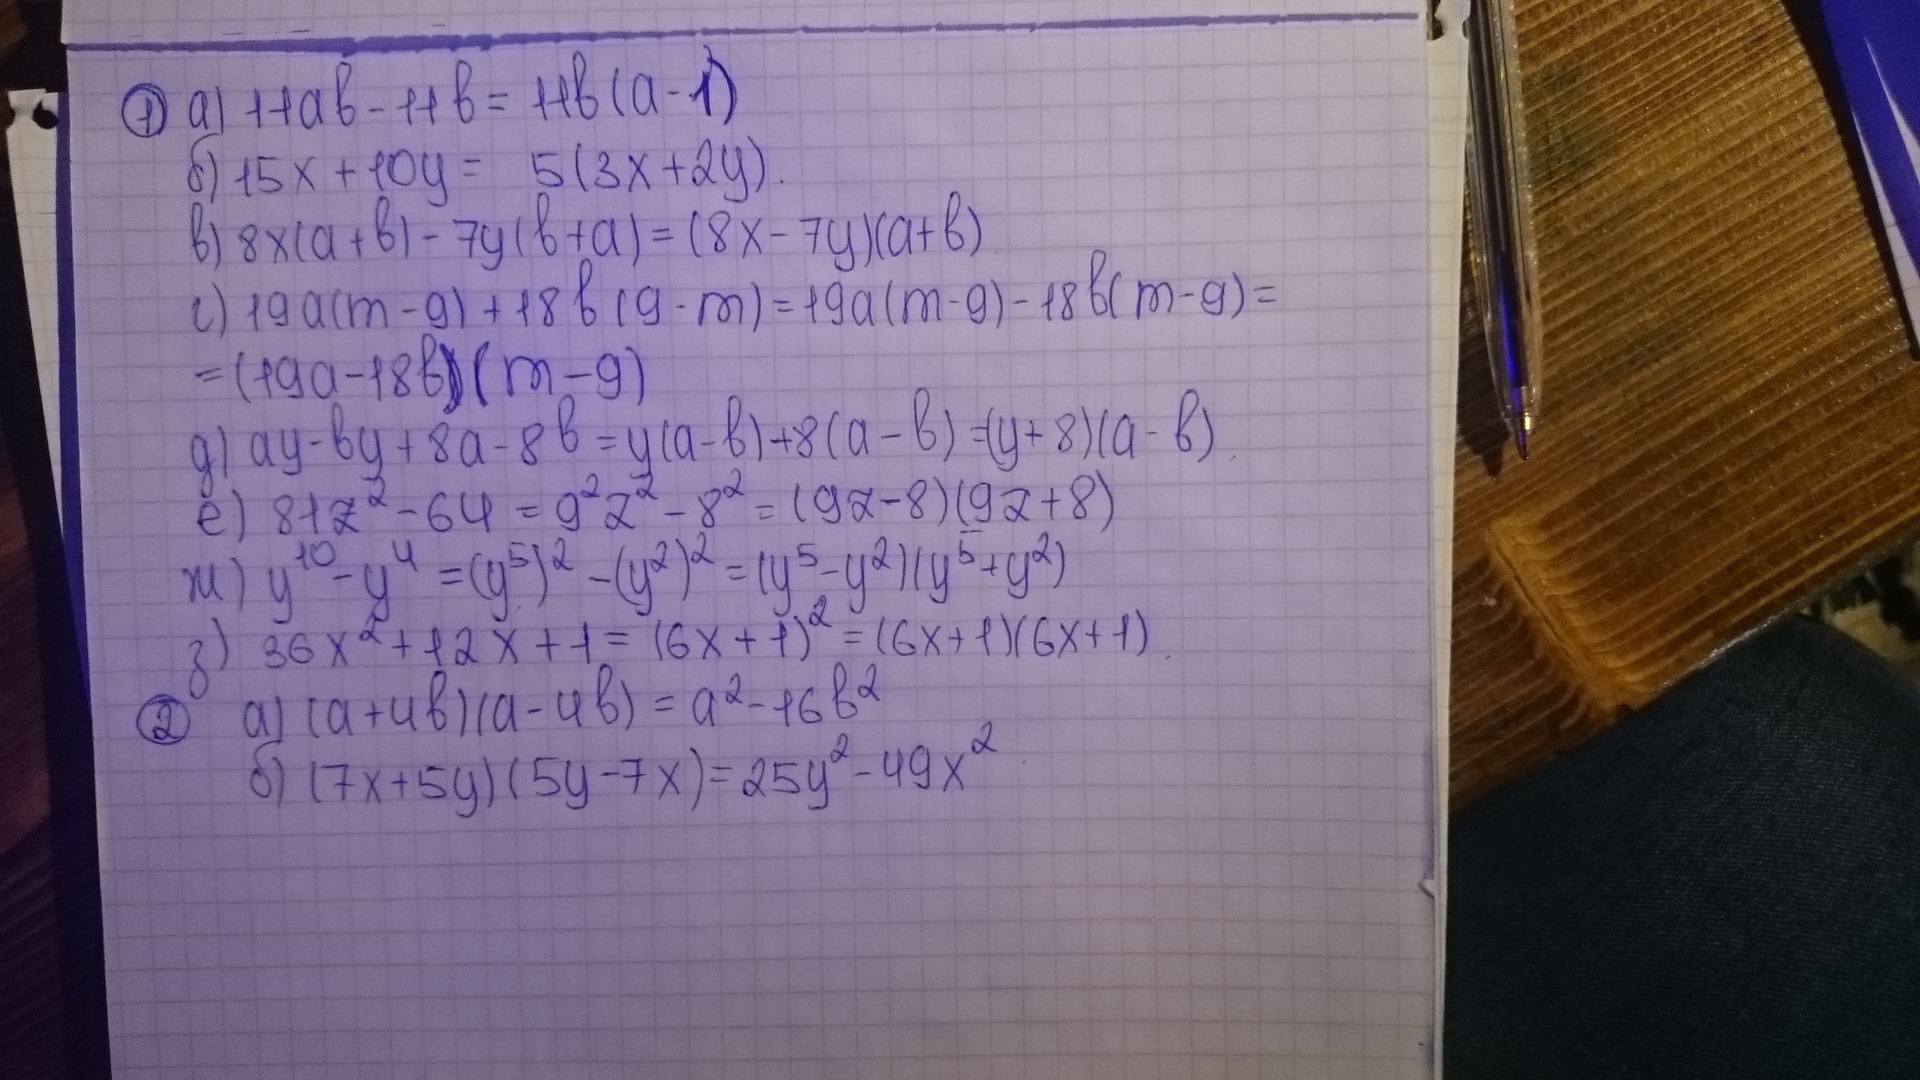 ① а) 11ab - 11b = 11b(a - 1)
б) 15x + 10y = 5(3x + 2y).
в) 8x(a + b) - 7y(b + a) = (8x - 7y)(a + b)
г) 19a(m - g) + 18b(g - m) = 19a(m - g) - 18b(m - g) =
= (19a - 18b)(m - g)
д) ay - by + 8a - 8b = y(a - b) + 8(a - b) = (y + 8)(a - b).
е) 81z² - 64 = 9²z² - 8² = (9z - 8)(9z + 8)
ж) y¹⁰ - y⁴ = (y⁵)² - (y²)² = (y⁵ - y²)(y⁵ + y²)
з) 36x² + 12x + 1 = (6x + 1)² = (6x + 1)(6x + 1).
② а) (a + 4b)(a - 4b) = a² - 16b²
б) (7x + 5y)(5y - 7x) = 25y² - 49x²